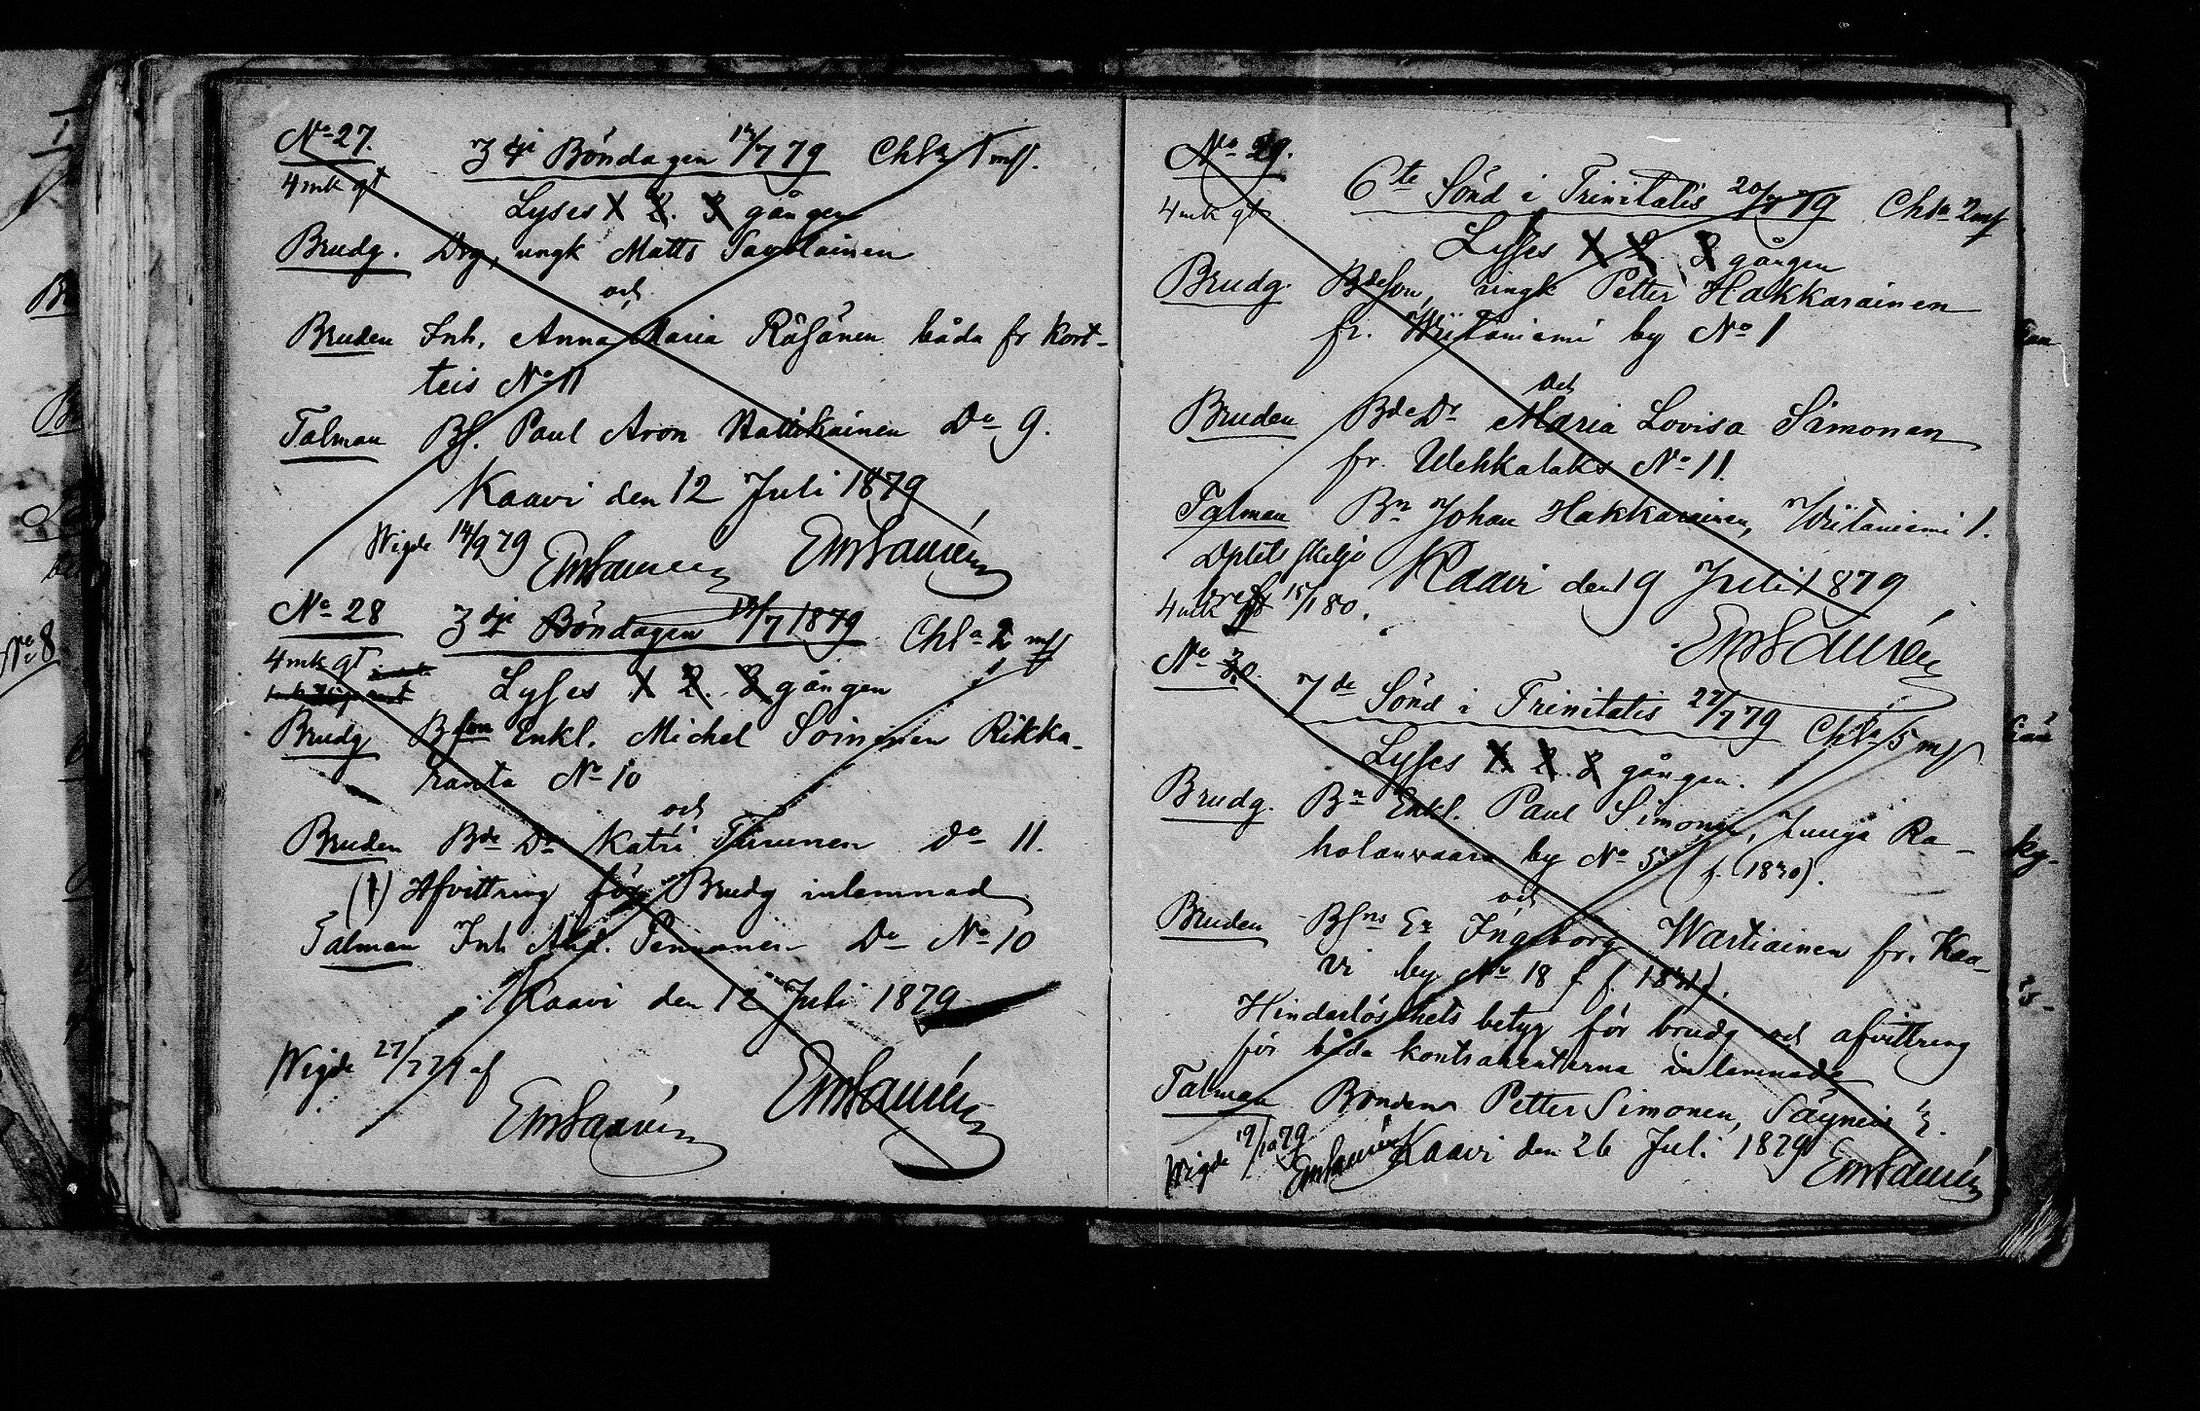 No 27. 3dje Böndagen 12/7 79 Chla 1 mk.
4 mk gt
Lyses 1 2. 3 gången
Brudg. Drg, ungk Matts Savolainen
och
Bruden Inh. Anna Maria Räsänen båda fr Kort-
teis No 11
Talman Bf. Paul Aron Do 9.
Kaavi den 12 Juli 1879
Wigde 14/9 79
No 28 3dje Böndagen 12/7 1879 Chla 2 mk
4 mk gt
Lyses 1 2. 3 gången
Brudg Bson Enkl. Michel Soininen Rikka-
ranta No 10
och
Bruden Bde Dr Katri Turunen do 11.
(1) Afvittring för Brudg inlemnad
Talman Inh And. Pennanen Do No 10
Kaavi den 12 Juli 1879
Wigde 27/7 79 af
No 29.
4 mk gt
6te Sönd i Trinitatis 20/7 79 Chla 2 mk
Lyses 1 2. 3 gången
Brudg. Bdeson, ungk Petter Hakkarainen
fr. Wiitaniemi by No 1
och
Bruden Bde Dr Maria Lovisa Simonen
fr. Wehkalaks No 11.
Talman Bn Johan Hakkarainen, Wiitaniemi 1.
Kaavi den 19 Juli 1879
4 mk
No 30. 7de Sönd i Trinitatis 27/7 79 Chla 5 mk
Lyses 1. 2. 3 gången.
Brudg. Bn Enkl. Paul Simonen, Juuga Ra-
holanvaara by No 5 (f. 1830).
och
Bruden Bfns Ea Ingeborg Wartiainen fr. Kaa-
vi by No 18
Hinderlöshets betyg för brudg och afvittring
för båda kontrahenterna inlemnade
Talman Bonden Petter Simonen, Säyneis
Wigde 19/10 79 Kaavi den 26 Juli 1879